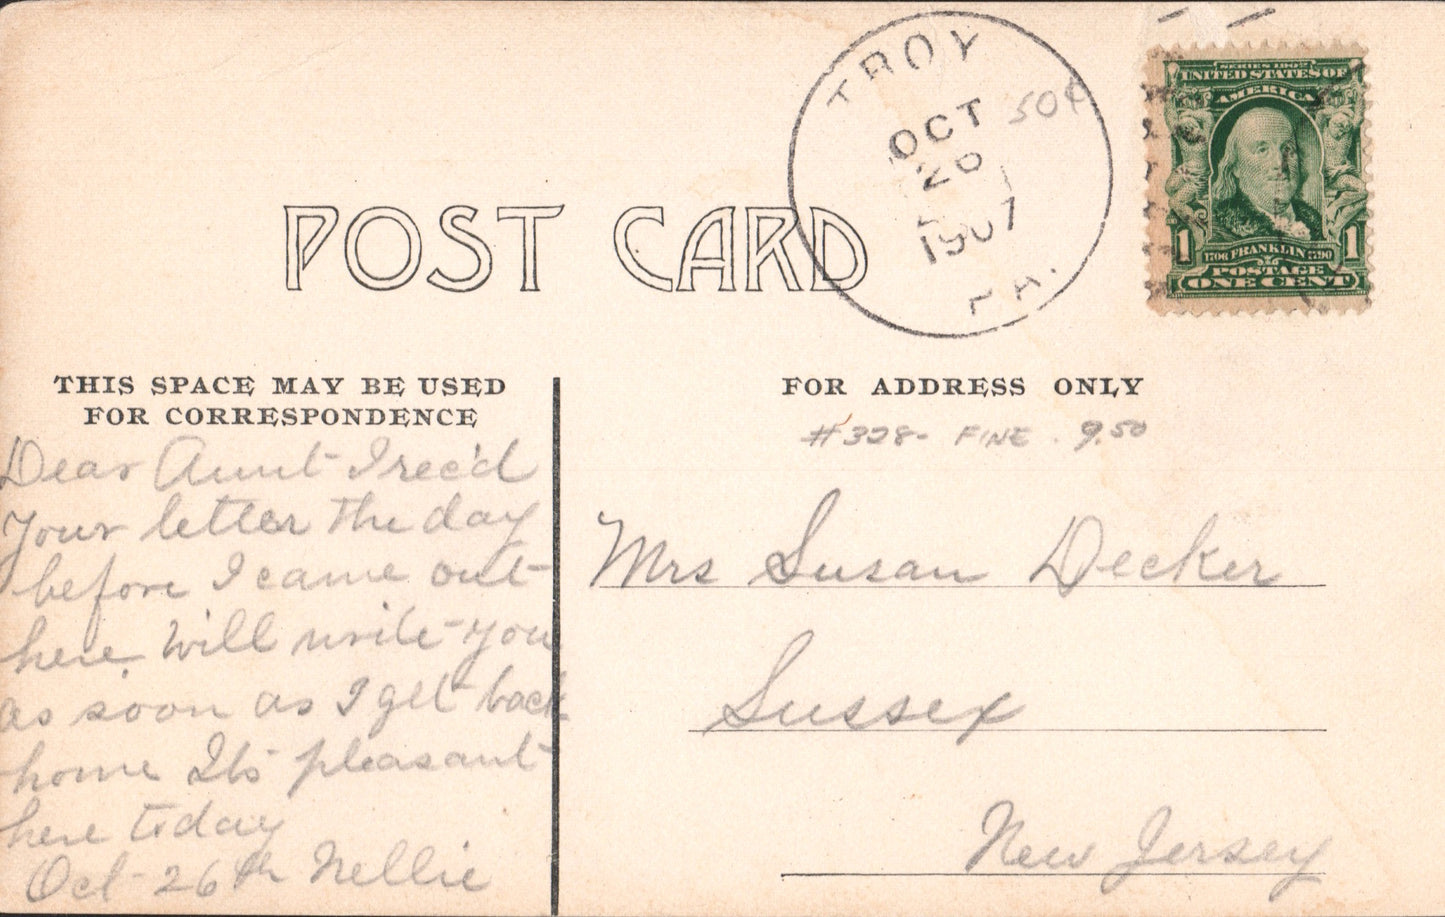 TROY
OCT
26
1907
PA.
50¢
SERIES 1902
UNITED STATES OF
AMERICA
1706 FRANKLIN 1790
1 1
POSTAGE
ONE CENT
POST CARD
THIS SPACE MAY BE USED
FOR CORRESPONDENCE
Dear Aunt I rec'd
Your letter the day
before I came out
here. Will write you
as soon as I get back
home Its pleasant
here today
Oct 26th Nellie
FOR ADDRESS ONLY
#328- FINE. 9.50
Mrs Susan Decker
Sussex
New Jersey